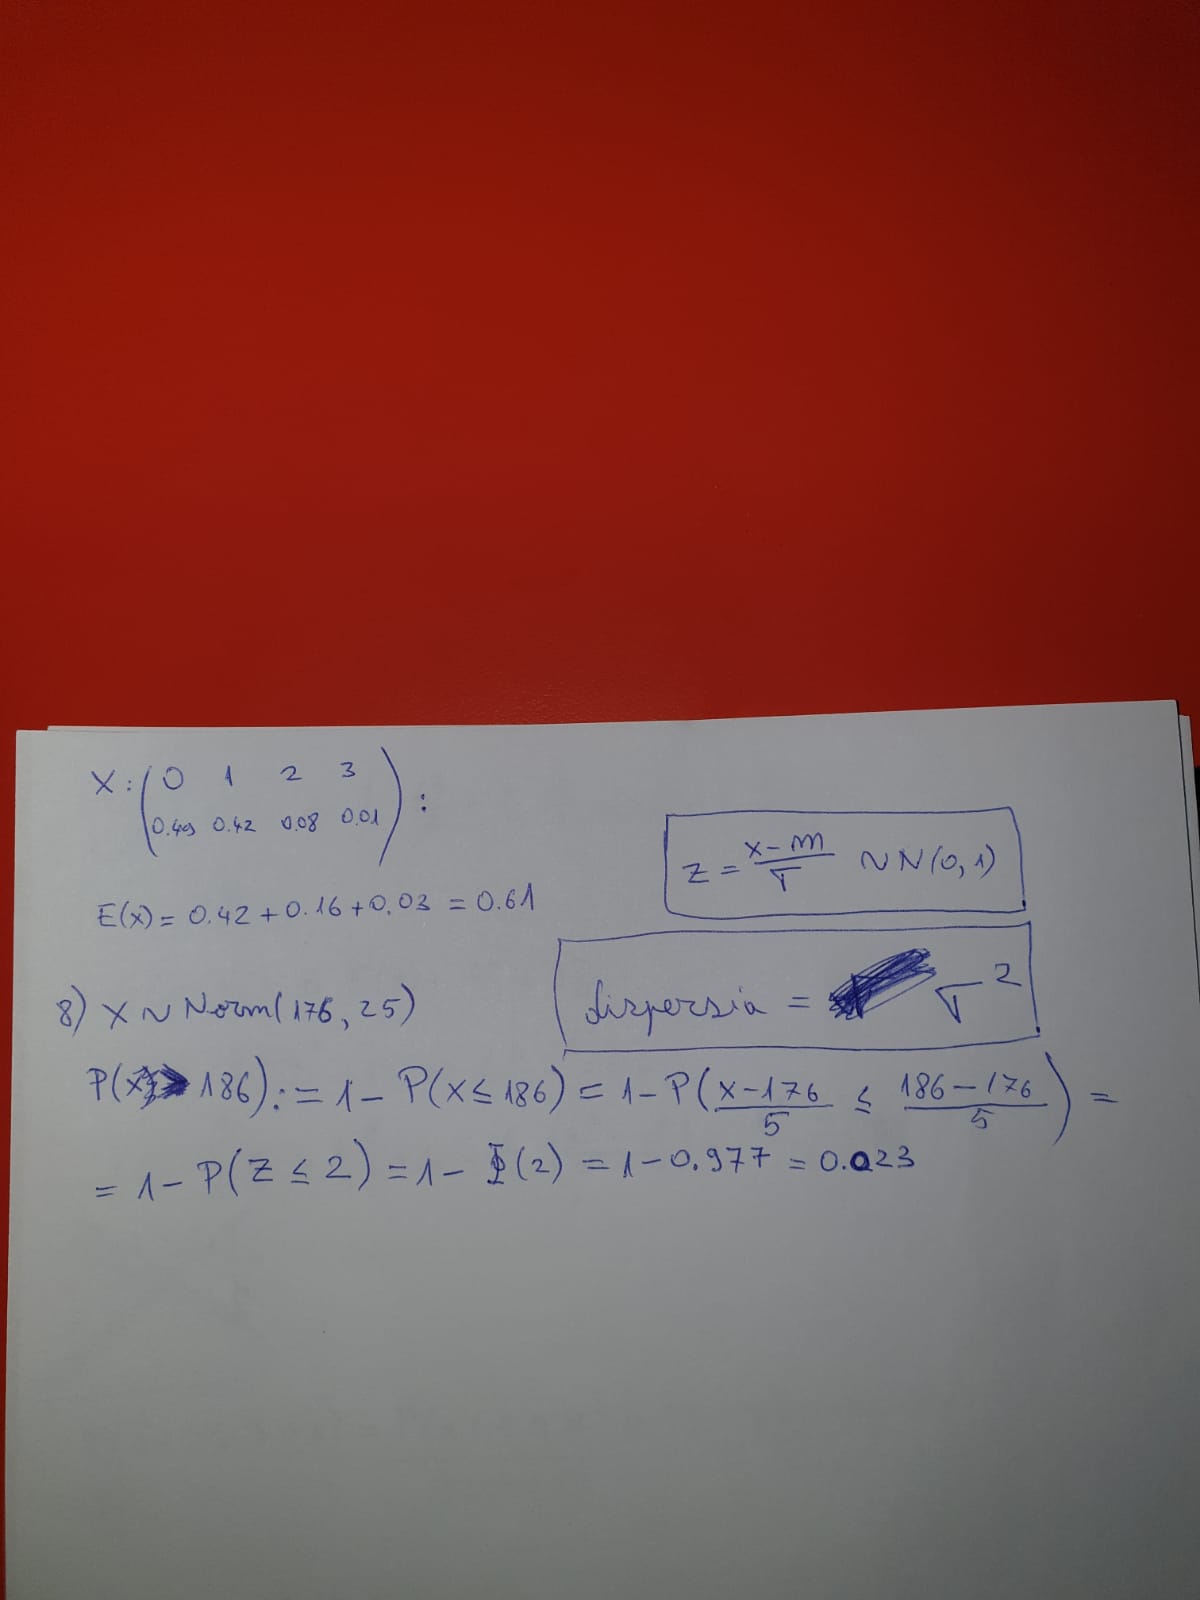 X: ( 0 1 2 3
0.49 0.42 0.08 0.01 ) :
E(x) = 0.42 + 0.16 + 0.03 = 0.61
z = (x - m)/σ ~ N(0, 1)
dispersia = σ²
8) X ~ Norm(176, 25)
P(X > 186) : = 1 - P(X ≤ 186) = 1 - P( (x - 176)/5 ≤ (186 - 176)/5 ) =
= 1 - P(Z ≤ 2) = 1 - Φ(2) = 1 - 0.977 = 0.023